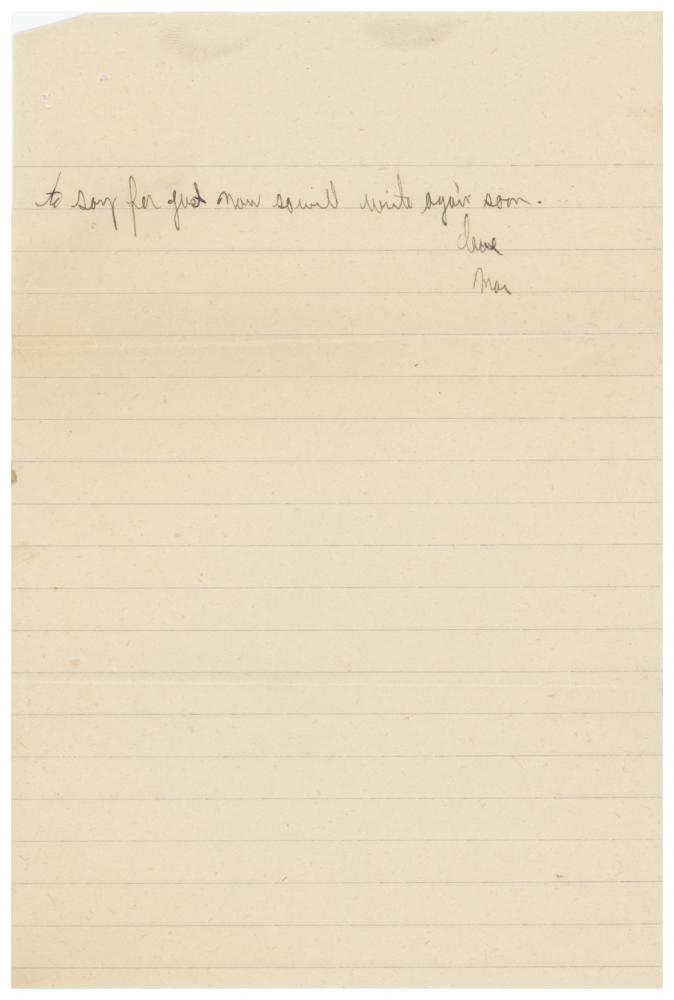 to say for just now so will write again soon.
Love
Mac